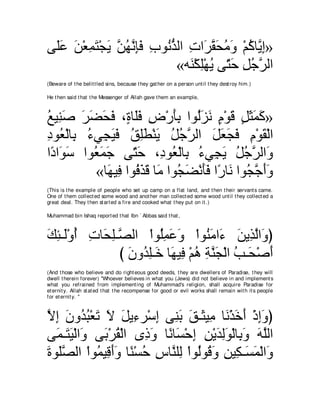 «إِيَّاكُمْ وَمُحَقَّرَاتِ الذُّنُوبِ فَإِنَّهُنَّ يَجْتَمِعْنَ عَلَى
الرَّجُلِ حَتَّى يُهْلِكْنَه»
(Beware of the belittled sins, because they gather on a person until they destroy him.)
He then said that the Messenger of Allah gave them an example,
«كَمَثَلِ قَوْمٍ نَزَلُوا بِأَرْضِ فَلَاةٍ، فَحَضَرَ صَنِيعُ
الْقَوْمِ فَجَعَلَ الرَّجُلُ يَنْطَلِقُ فَيَجِيءُ بِالْعُودِ
وَالرَّجُلُ يَجِيءُ بِالْعُودِ، حَتَّى جَمَعُوا سَوَادًا
وَأَجَّجُوا نَارًا فَأَنْضَجُوا مَا قَذَفُوا فِيهَا»
(This is the example of people who set up camp on a flat land, and then their servants came. One of them collected some wood and another man collected some wood until they collected a great deal. They then started a fire and cooked what they put on it.)
Muhammad bin Ishaq reported that Ibn `Abbas said that,
(وَالَّذِينَ ءَامَنُواْ وَعَمِلُواْ الصَّـلِحَاتِ أُوْلَـئِكَ
أَصْحَـبُ الْجَنَّةِ هُمْ فِيهَا خَـلِدُونَ )
(And those who believe and do righteous good deeds, they are dwellers of Paradise, they will dwell therein forever) "Whoever believes in what you (Jews) did not believe in and implements what you refrained from implementing of Muhammad's religion, shall acquire Paradise for eternity. Allah stated that the recompense for good or evil works shall remain with its people for eternity. "
(وَإِذْ أَخَذْنَا مِيثَـقَ بَنِى إِسْرءِيلَ لاَ تَعْبُدُونَ إِلاَّ
اللَّهَ وَبِالْوَلِدَيْنِ إِحْسَانًا وَذِى الْقُرْبَى وَالْيَتَـمَى
وَالْمَسَـكِينِ وَقُولُواْ لِلنَّاسِ حُسْنًا وَأَقِيمُواْ الصَّلَوةَ